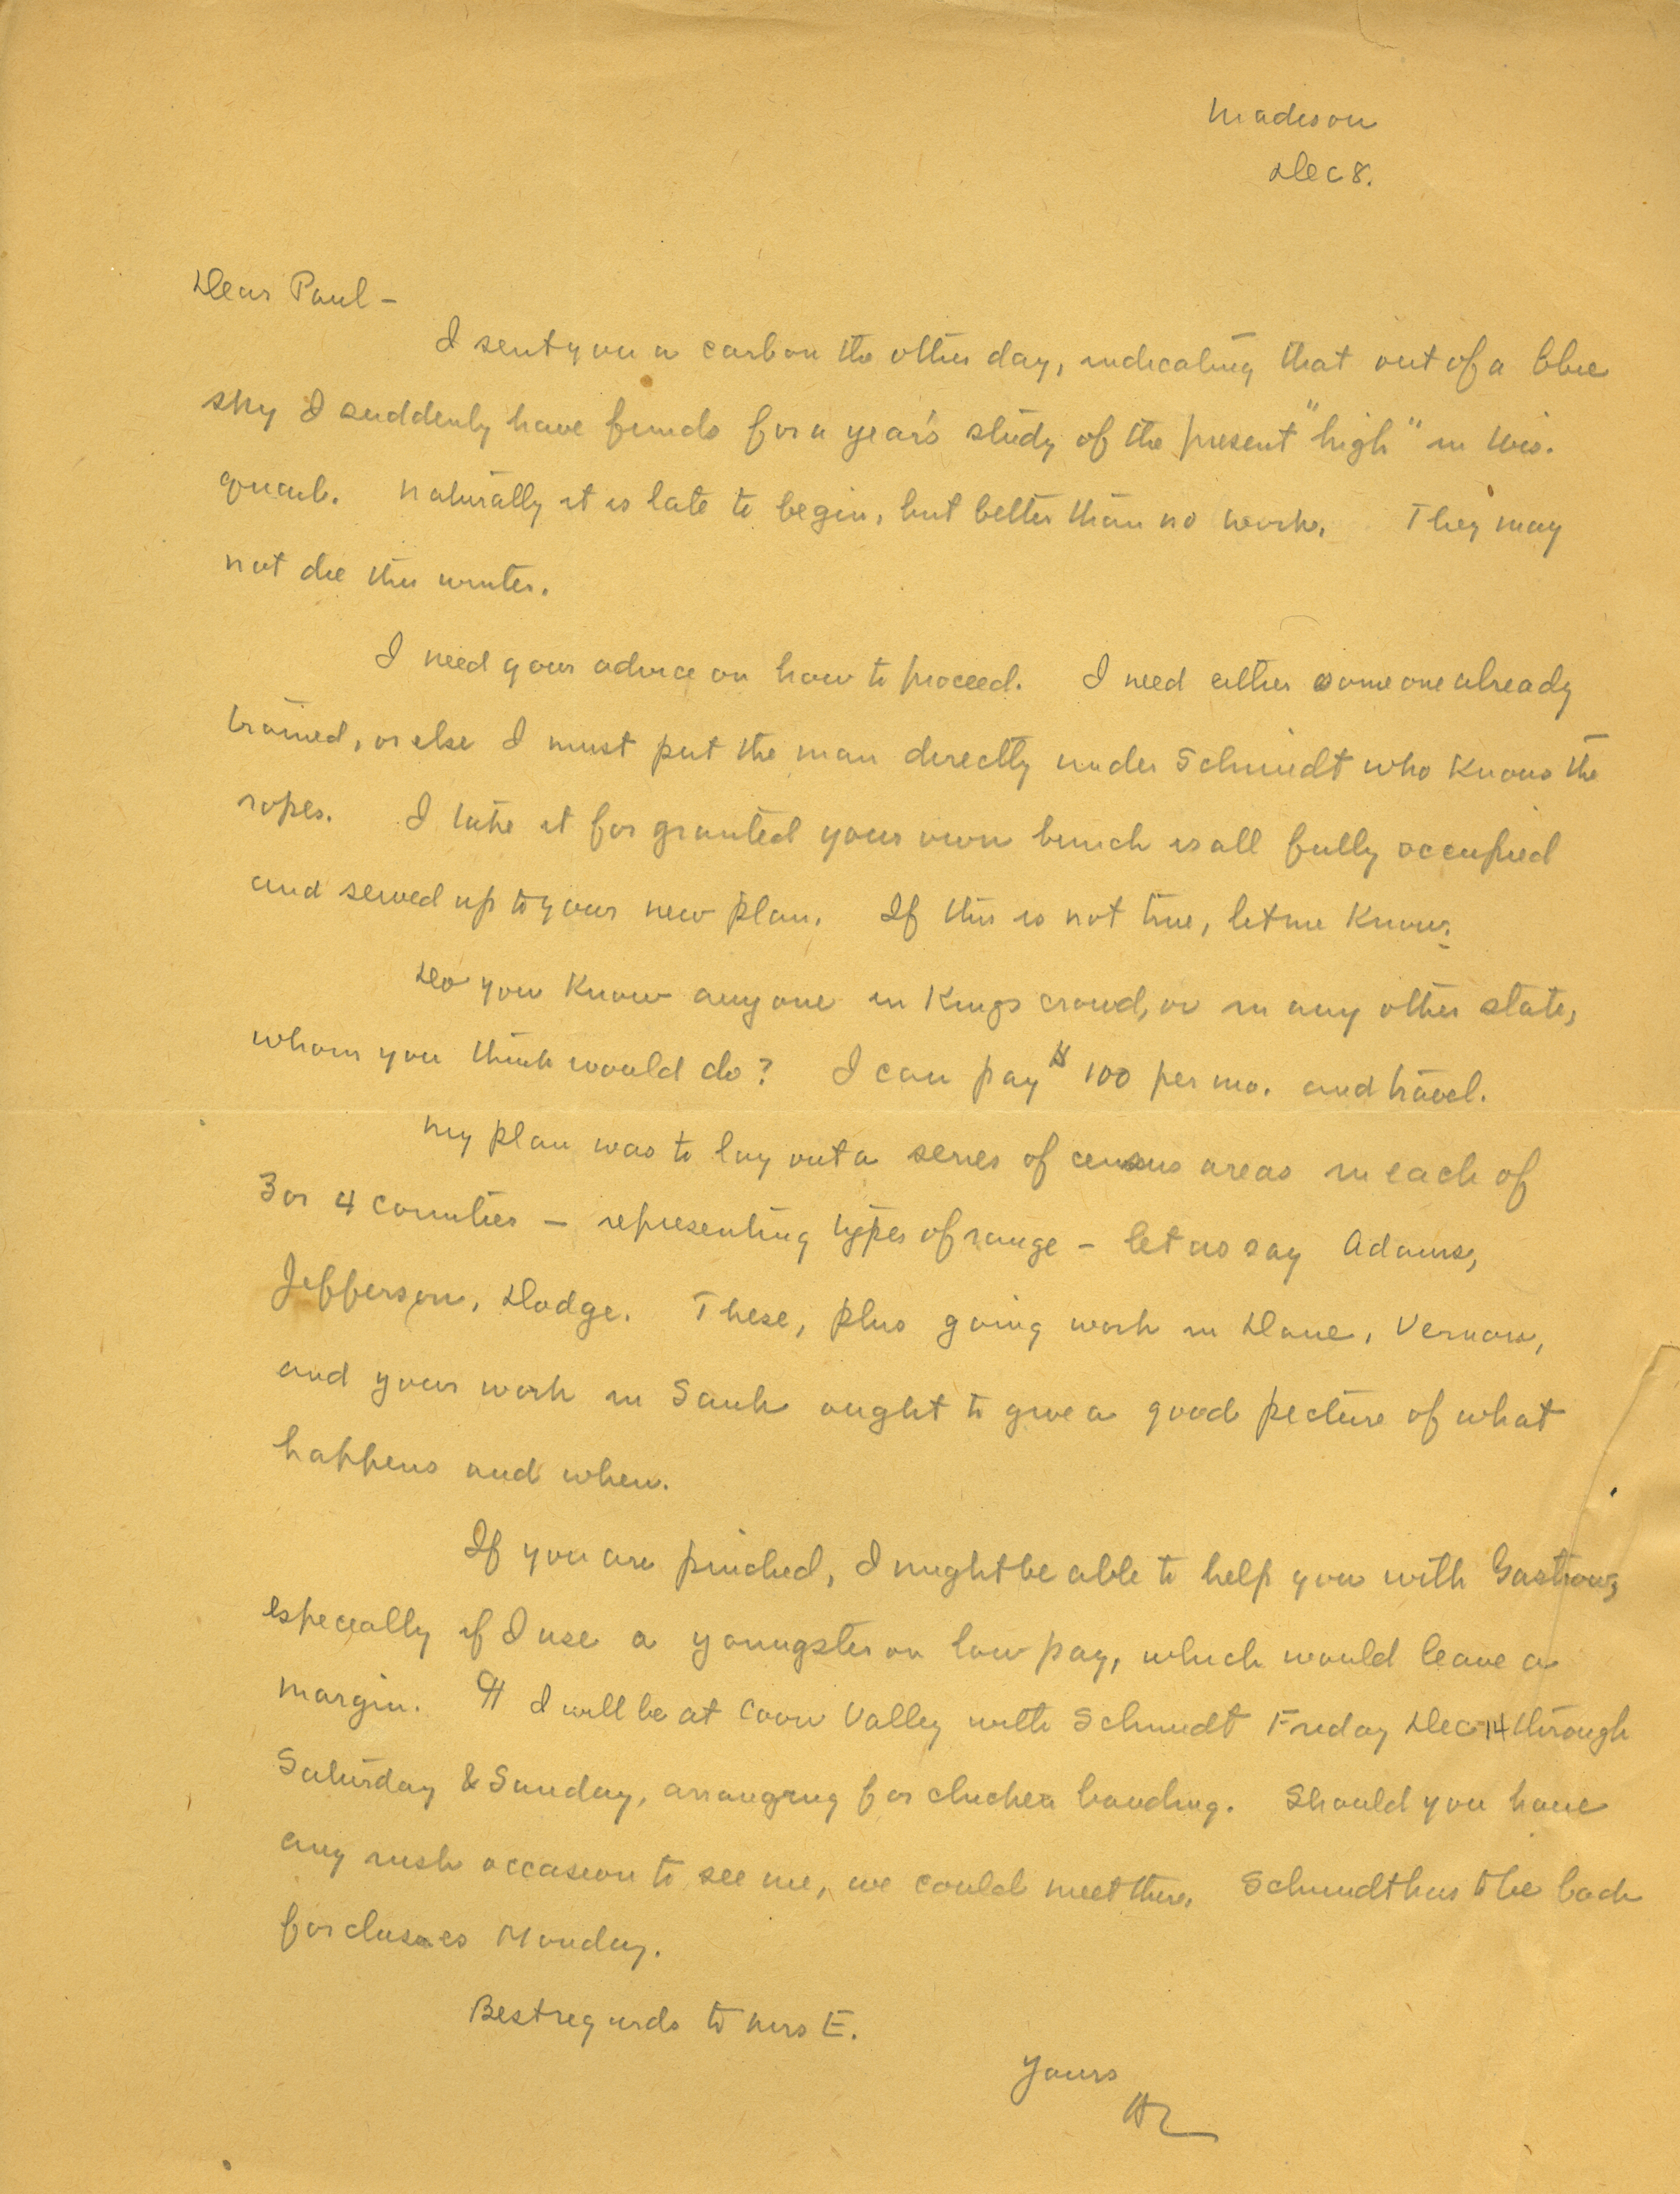 Madison
Dec 8.
Dear Paul -
I sent you a carbon the other day, indicating that out of a blue
sky I suddenly have funds for a year's study of the present "high" in Wis.
quail. Naturally it is late to begin, but better than no work. They may
not die this winter.
I need your advice on how to proceed. I need either someone already
trained, or else I must put the man directly under Schmidt who knows the
ropes. I take it for granted your own bunch is all fully occupied
and sewed up to your new plan. If this is not true, let me know.
Do you know anyone in Kings crowd, or in any other state,
whom you think would do? I can pay $100 per mo. and travel.
My plan was to lay out a series of census areas in each of
3 or 4 counties - representing types of range - let us say Adams,
Jefferson, Dodge. These, plus going work in Dane, Vernon,
and your work in Sauk ought to give a good picture of what
happens and when.
If you are pinched, I might be able to help you with Gastrow,
especially if I use a youngster on low pay, which would leave a
margin. ¶ I will be at Coon Valley with Schmidt Friday Dec 14 through
Saturday & Sunday, arranging for chicken banding. Should you have
any rush occasion to see me, we could meet there. Schmidt has to be back
for classes Monday.
Best regards to Mrs E.
Yours
AL